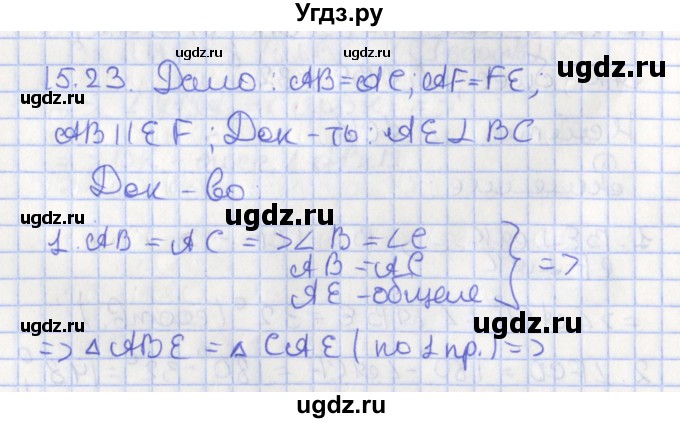 Угдз.ру
15.23. Дано: AB=AC; AF=FE;
AB||EF; Док-ть: AE⊥BC
Док-во
1. AB = AC => ∠B = ∠C
AB = AC
AE - общая } =>
=> △ABE = △CAE (по 1 пр.) =>
ugdz.ru
ugdz.ru
ugdz.ru
ugdz.ru
ugdz.ru
ugdz.ru
ugdz.ru
ugdz.ru
ugdz.ru
ugdz.ru
ugdz.ru
ugdz.ru
ugdz.ru